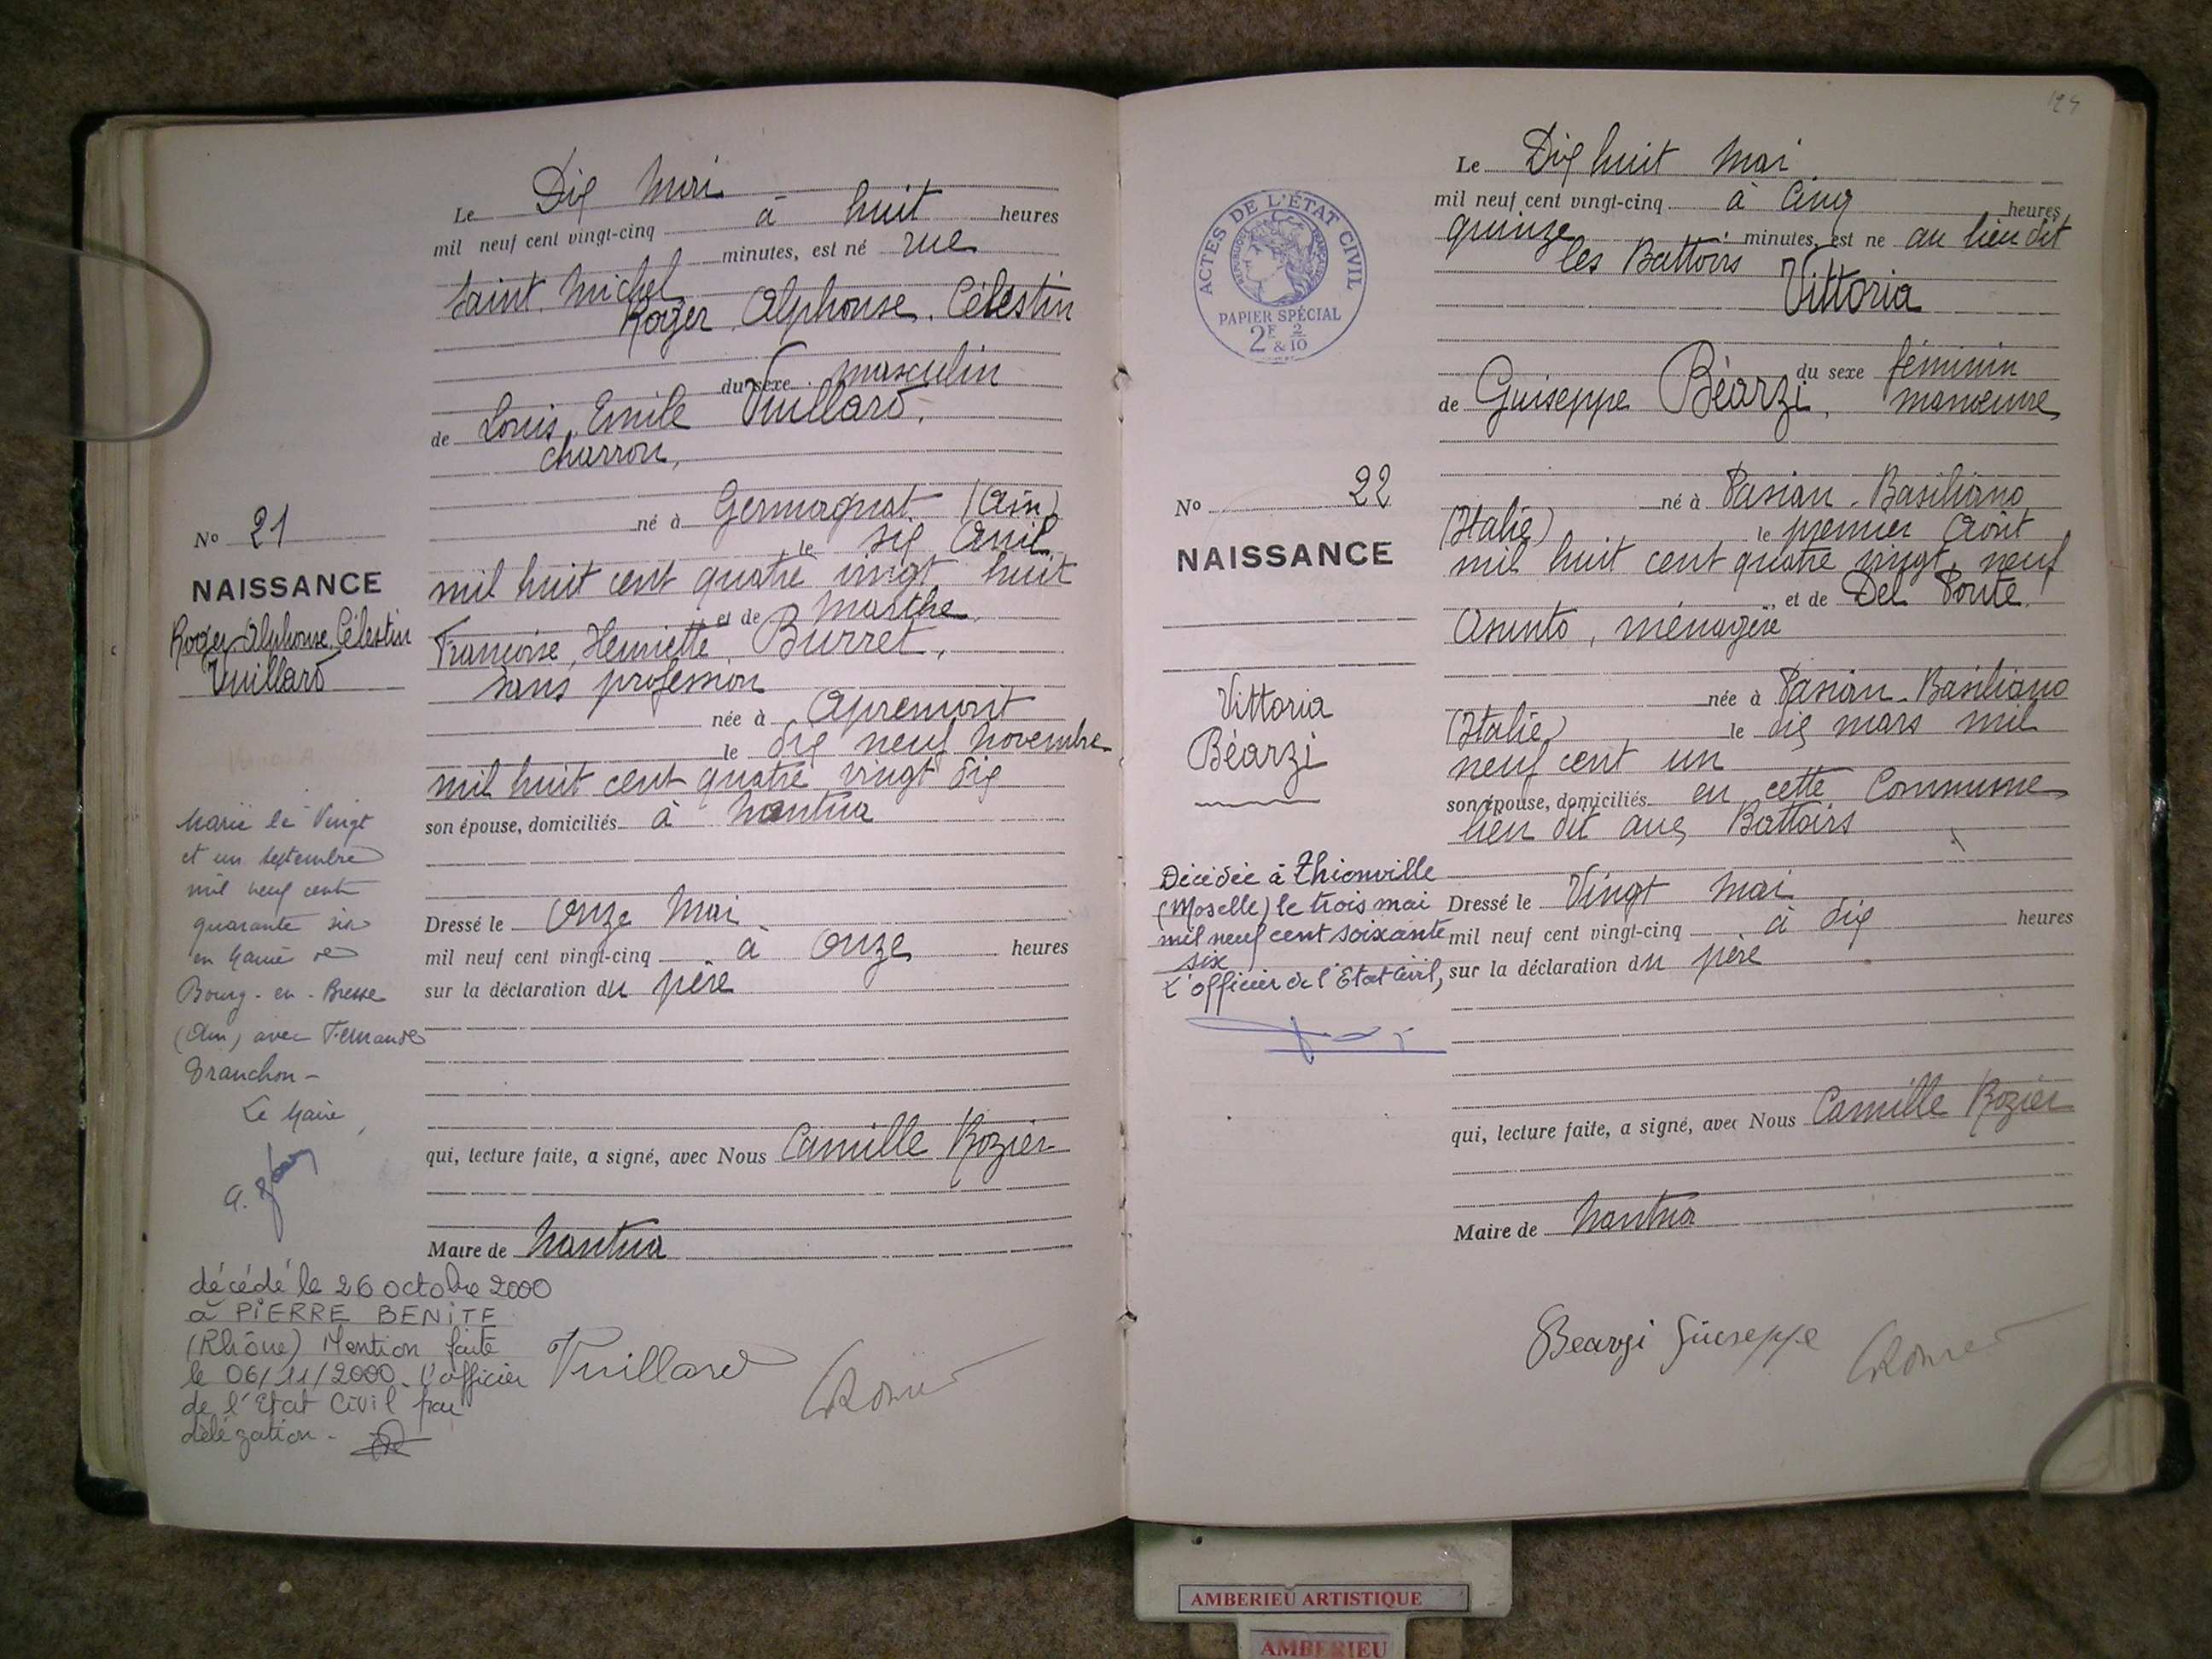 Le Dix Mai
mil neuf cent vingt-cinq à huit heures
minutes, est né rue
Saint. Michel
Roger, Alphonse, Célestin
du sexe masculin
de Louis, Emile Vuillard,
charron,
né à Germagnat (Ain)
le six Avril
mil huit cent quatre vingt huit
et de Marthe,
Françoise, Henriette, Burret,
sans profession
née à Apremont
le dix neuf Novembre
mil huit cent quatre vingt dix
son épouse, domiciliés à Nantua
Dressé le Onze Mai
mil neuf cent vingt-cinq à Onze heures
sur la déclaration du père
qui, lecture faite, a signé, avec Nous Camille Rozier
Maire de Nantua
Vuillard
No 21
NAISSANCE
Roger Alphonse Célestin
Vuillard
Marié le Vingt
et un septembre
mil neuf cent
quarante six
en Mairie de
Bourg-en-Bresse
(Ain) avec Fernande
Franchon -
Le Maire,
décédé le 26 octobre 2000
à PIERRE BENITE
(Rhône) Mention faite
le 06/11/2000. l'officier
de l'Etat Civil par
délégation -
ACTES DE L'ÉTAT CIVIL
RÉPUBLIQUE FRANÇAISE
PAPIER SPÉCIAL
2F & 2/10
Le Dix huit Mai
mil neuf cent vingt-cinq à Cinq heures
quinze minutes, est né au lieu dit
les Battoirs
Vittoria
du sexe féminin
de Guiseppe Béarzi, manoeuvre
né à Pasian-Basiliano
(Italie) le premier Août
mil huit cent quatre vingt neuf
et de Del Ponte
Asunto, ménagère
née à Pasian-Basiliano
(Italie) le dix mars mil
neuf cent un
son épouse, domiciliés en cette Commune
lieu dit aux Battoirs
Dressé le Vingt Mai
mil neuf cent vingt-cinq à dix heures
sur la déclaration du père
qui, lecture faite, a signé, avec Nous Camille Rozier
Maire de Nantua
Bearzi Giuseppe
No 22
NAISSANCE
Vittoria
Béarzi
Décédée à Thionville
(Moselle) le trois mai
mil neuf cent soixante
six
L'officier de l'Etat Civil,
AMBERIEU ARTISTIQUE
AMBERIEU